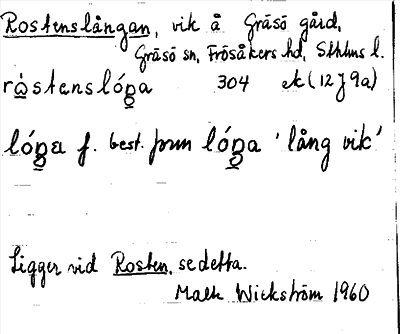 Rostenslångan, vik å Gräsö gård,
Gräsö sn, Frösåkers hd, Sthlms l.
304 ek (12J 9a)
f. best. 'lång vik'
Ligger vid Rosten, se detta.
Wickström 1960